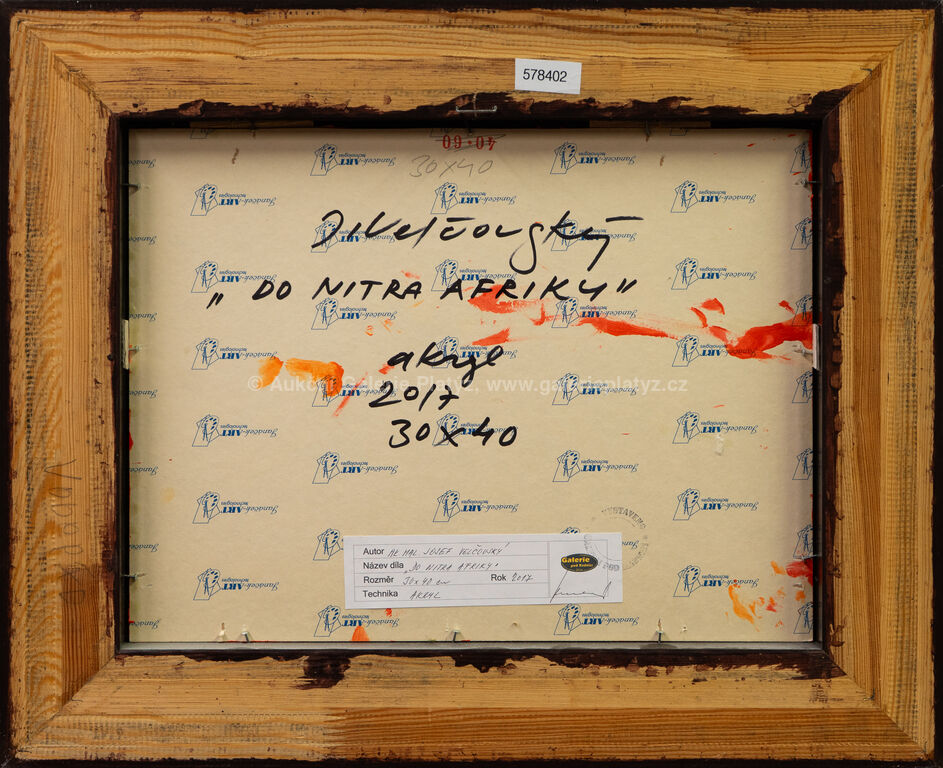 578402
40·60
30x40
Velčovský
„DO NITRA AFRIKY"
akryl
2017
30x40
© Aukční Galerie Platýz, www.galerieplatyz.cz
Janáček-ART
technologies
Autor AK. MAL JOSEF VELČOVSKÝ
Název díla „DO NITRA AFRIKY"
Rozměr 30x40 cm Rok 2017
Technika AKRYL
Galerie
pod Radnicí
VYSTAVENO